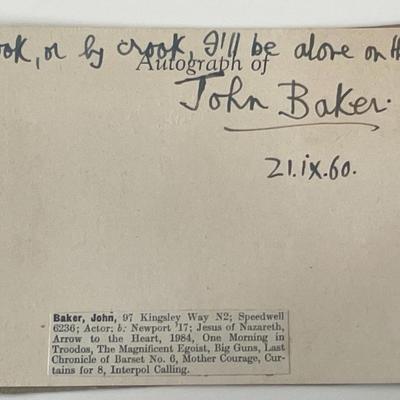 ook, or by crook, I'll be alone on
Autograph of
John Baker.
21.ix.60.
Baker, John, 97 Kingsley Way N2; Speedwell
6236; Actor; b: Newport '17; Jesus of Nazareth,
Arrow to the Heart, 1984, One Morning in
Troodos, The Magnificent Egoist, Big Guns, Last
Chronicle of Barset No. 6, Mother Courage, Cur-
tains for 8, Interpol Calling.